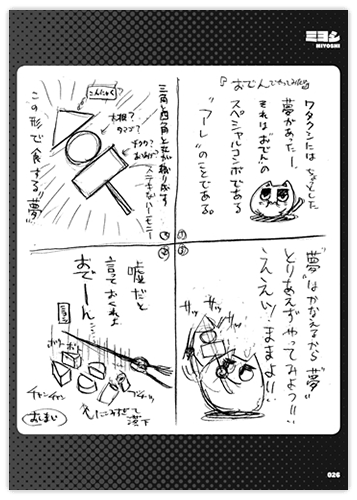 ミヨシ
MIYOSHI
『おでんでやってみたら』
ワタクシには、ちょっとした
夢があったー。
それは"おでん"の
スペシャルコンボである
"アーレ"のことである。
①
三角と四角と丸が織り成す
ステキなハーモニー
こんにゃく
大根?
タマゴ?
この形で食する"夢"
②
"夢"はかなえるから"夢"
とりあえずやってみよっ!!
ええい!ままよ!!
サッ
サッ
サッ
③
嘘だと
言っておくれよ
おでーーん
ミヨシ
ボト
ボト
チャンチャン
落下
おしまい
④
026